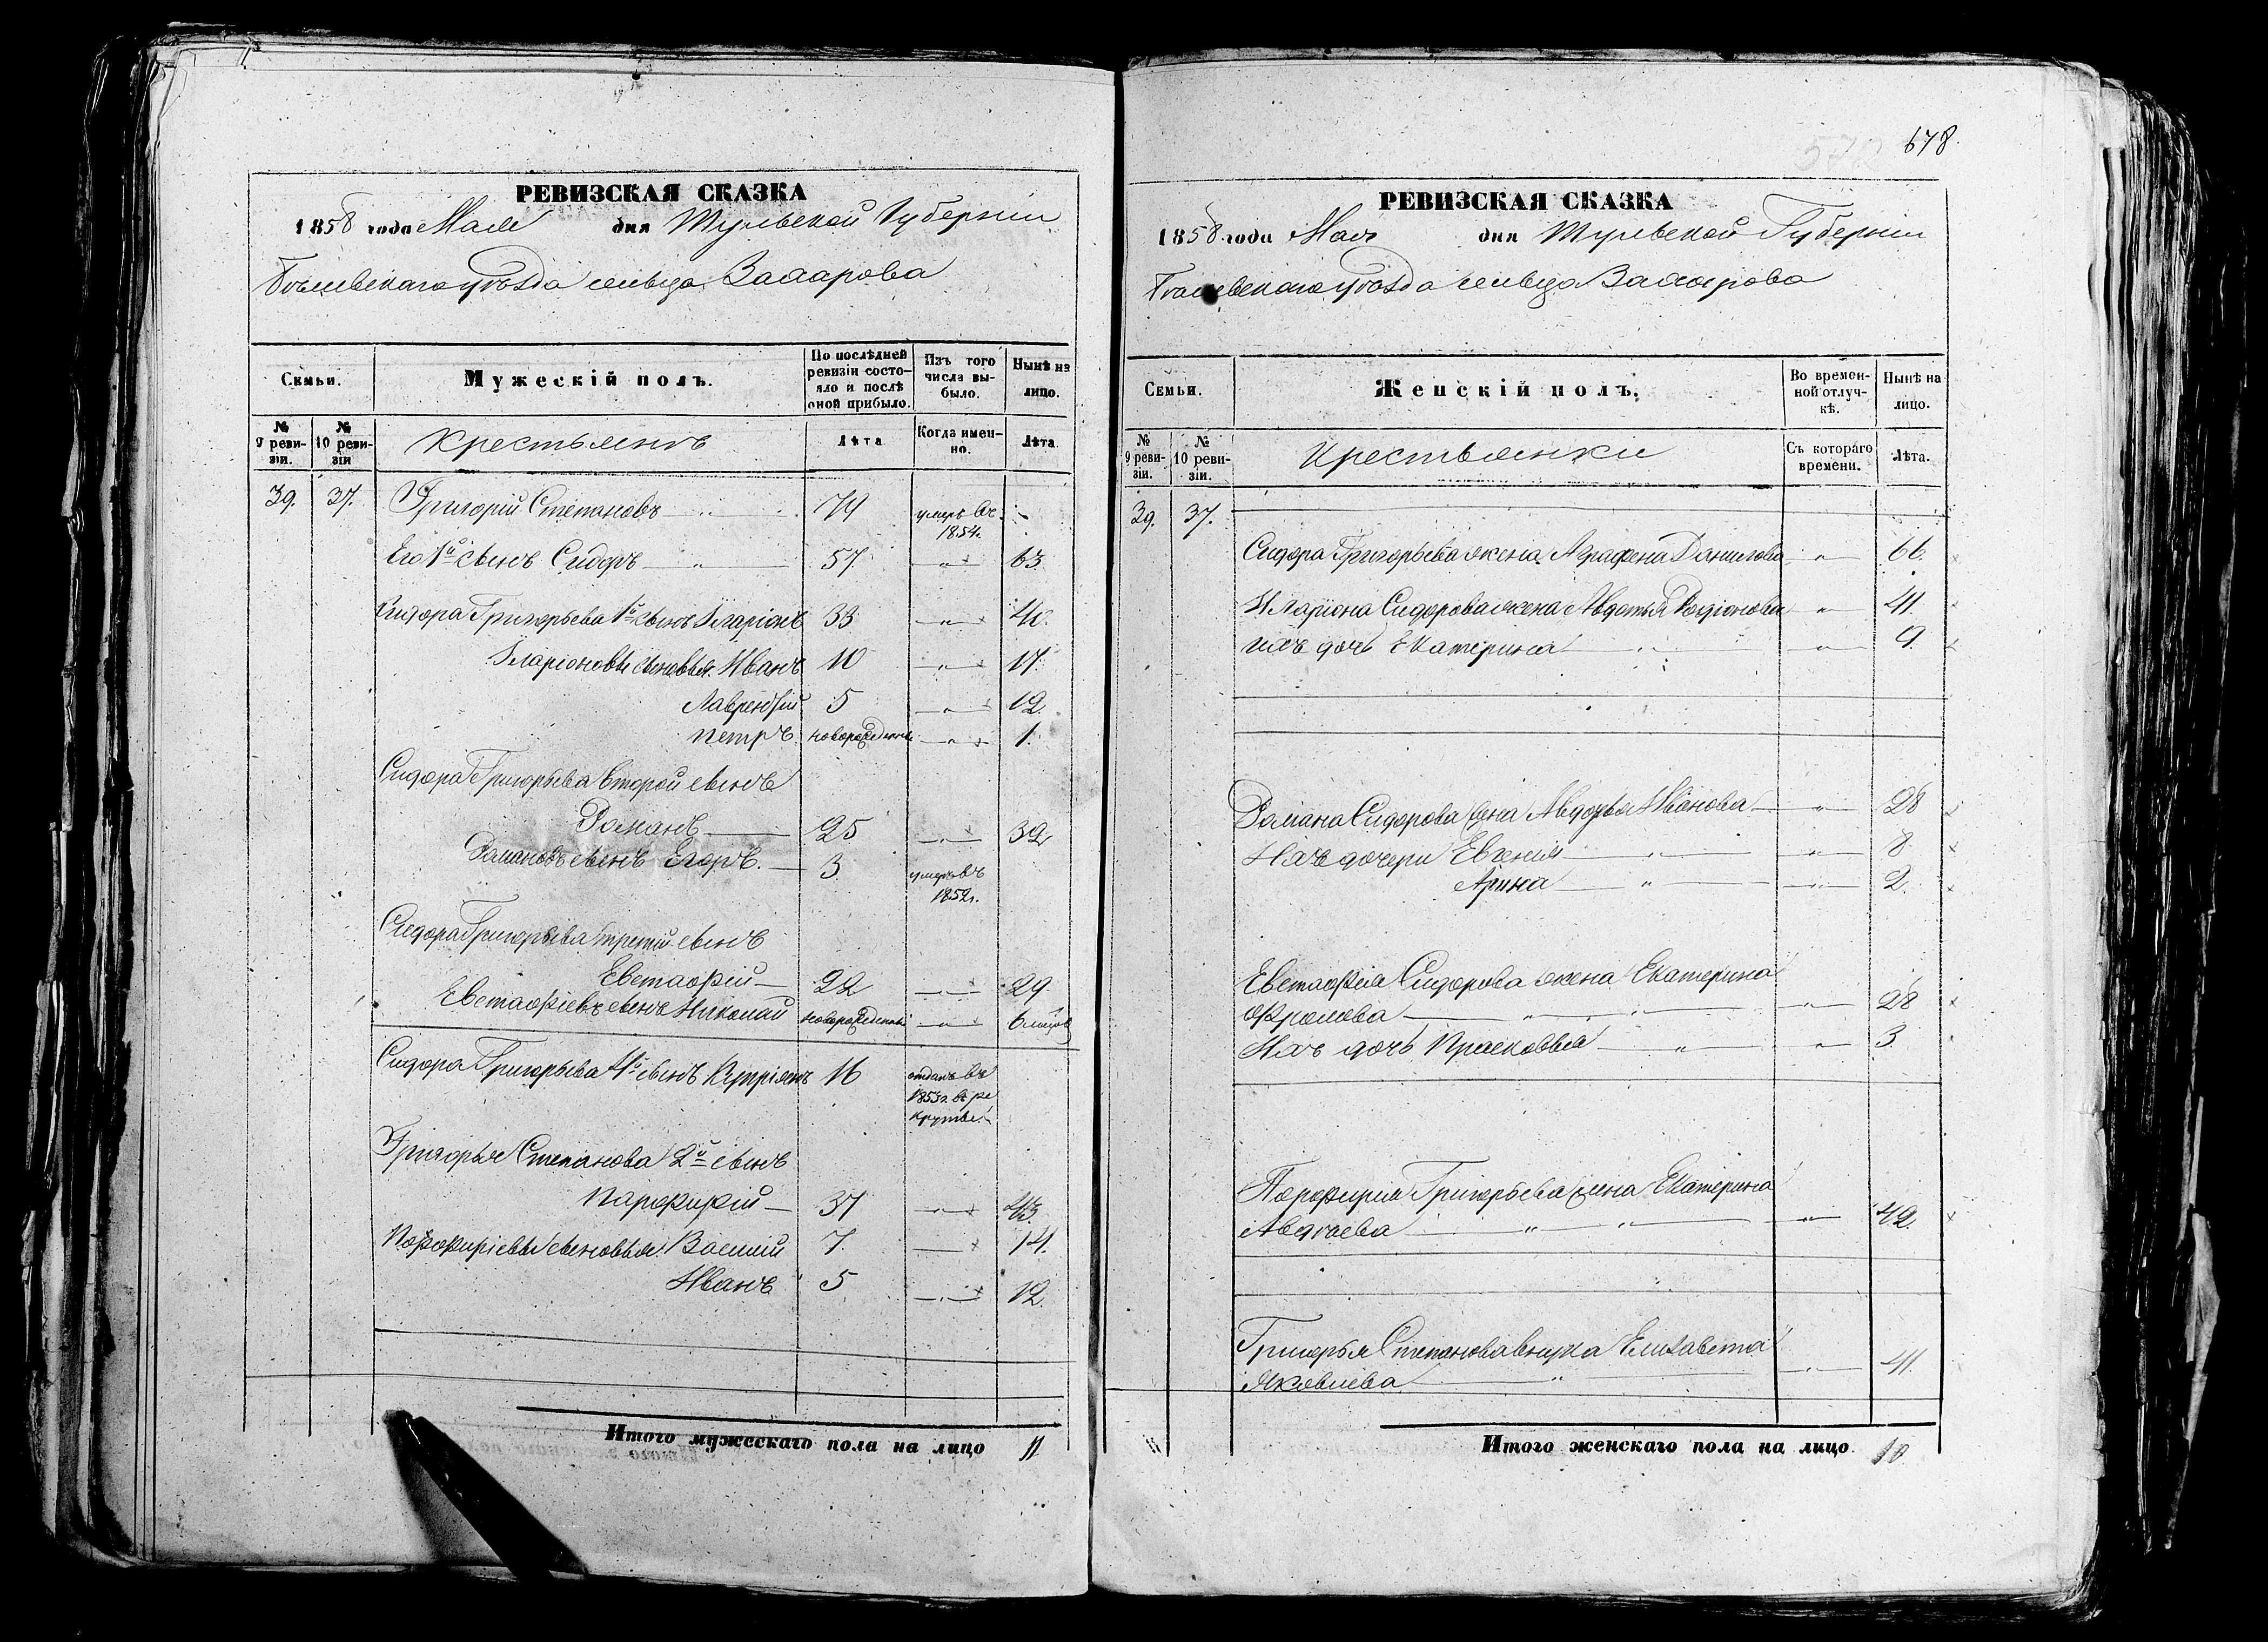 678
РЕВИЗСКАЯ СКАЗКА
1858 года Мая дня Тульской Губерніи
Бѣлевскаго уѣзда сельца Захарова
Семьи.
Мужескій полъ.
По послѣдней ревизіи состояло и послѣ оной прибыло.
Изъ того числа выбыло.
Нынѣ на лицо.
№ 9 ревизіи.
№ 10 ревизіи
Крестьянъ
Лѣта
Когда именно.
Лѣта.
39. 37. Григорій Степановъ — " — 74 умеръ въ 1854г. —
Его 1й сынъ Сидоръ — " — 57 — " — 63
Сидора Григорьева 1й сынъ Иларіонъ 33 — " — 40.
Иларіоновы сыновья. Иванъ 10 — " — 17.
Лаврентій 5 — " — 12.
Петръ новорожденный — " — 1.
Сидора Григорьева второй сынъ
Романъ — 25 — " — 32
Романовъ сынъ Егоръ. — 3 умеръ въ 1852г.
Сидора Григорьева третій сынъ
Евстафій — 22 — " — 29
Евстафіевъ сынъ Николай новорожденный — " — 6 мѣсяцов
Сидора Григорьева 4й сынъ Купріянъ 16 отданъ въ 1853г. въ рекруты.
Григорья Степанова 2й сынъ
Парфирій — 37 — " — 43.
Порфиріевы сыновья. Василій 7. — " — 14.
Иванъ 5 — " — 12.
Итого мужескаго пола на лицо 11
РЕВИЗСКАЯ СКАЗКА
1858 года Мая дня Тульской Губерніи
Бѣлевскаго уѣзда сельца Захарова
Семьи.
Женскій полъ.
Во временной отлучкѣ.
Нынѣ на лицо.
№ 9 ревизіи.
№ 10 ревизіи.
Крестьянки
Съ котораго времени.
Лѣта.
39. 37.
Сидора Григорьева жена Аграфена Данилова — " — 66.
Иларіона Сидорова жена Авдотья Родіонова — " — 41.
ихъ дочь Екатерина — " — 9.
Романа Сидорова жена Авдотья Иванова — " — 28
Ихъ дочери Евгенія — " — 8
Арина — " — 2.
Евстафія Сидорова жена Екатерина
Фролова — " — 28
Ихъ дочь Прасковья — " — 3.
Порфирія Григорьева жена Екатерина
— " — 42.
Григорья Степанова внучка Елизавета
Яковлева — " — 41.
Итого женскаго пола на лицо 10